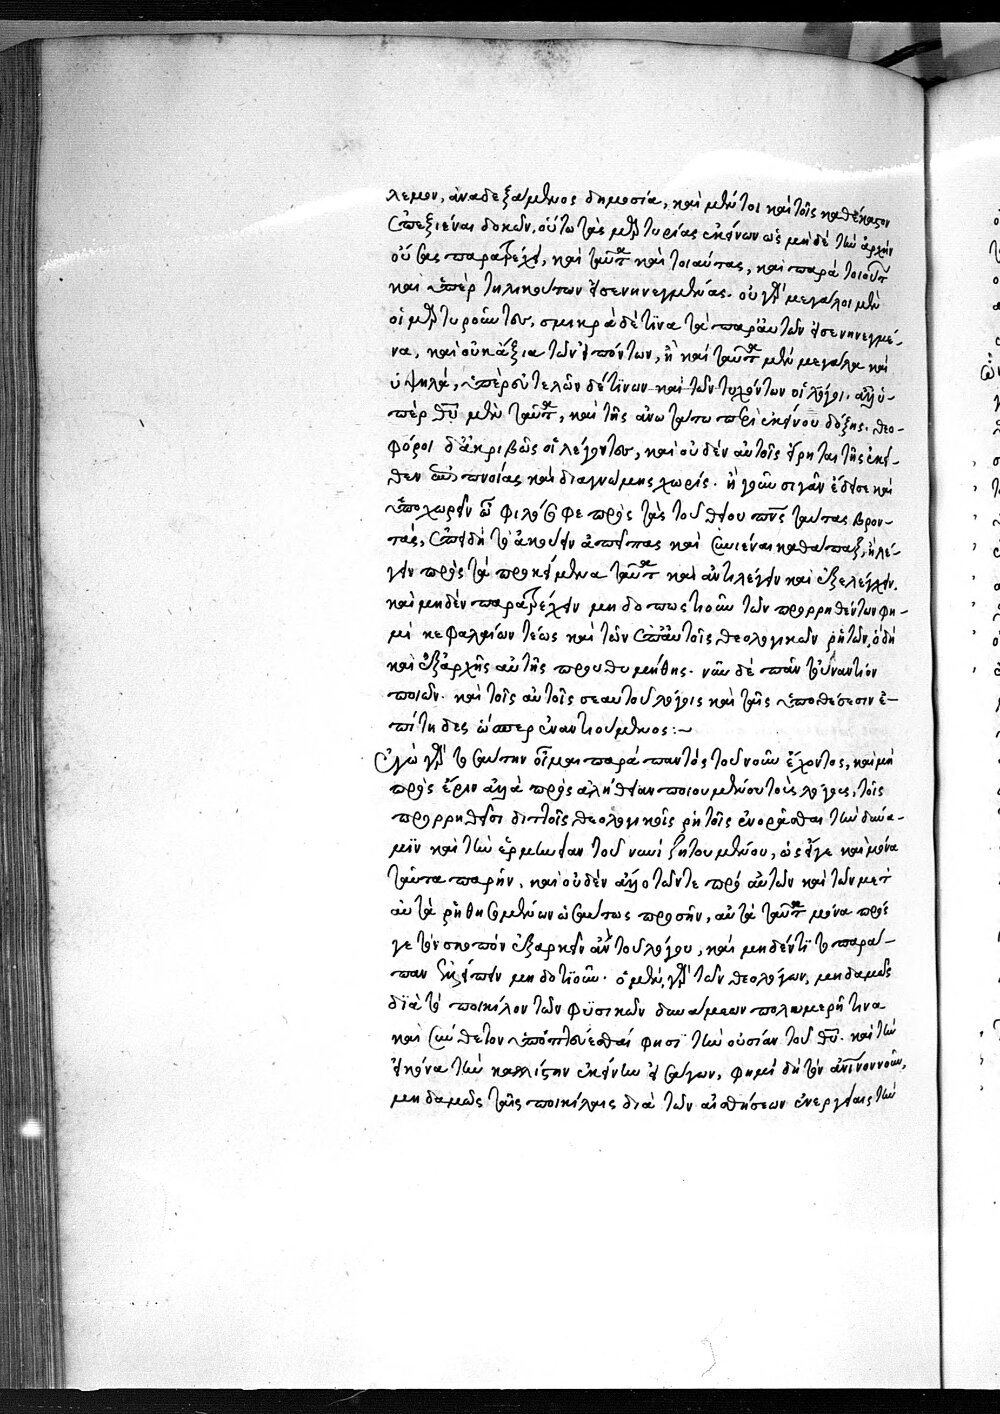 λεμον, ἀναδεξάμενος δημοσία, καὶ μέντοι καὶ τοῖς καθέκαστον
ἐπεξιέναι δοκῶν, οὕτω τὰς μαρτυρίας ἐκείνων ὡς μηδὲ τὴν ἀρχὴν
οὔσας παρατρέχει, καὶ ταῦτα καὶ τοιαύτας, καὶ παρὰ τοιούτων
καὶ ὑπὲρ τηλικούτων εἰσενηνεγμένας. οὐ γὰρ μεγάλοι μὲν
οἱ μαρτυροῦντες, σμικρὰ δέ τινα τὰ παρ' αὐτῶν εἰσενηνεγμέ-
να, καὶ οὐκ ἄξια τῶν εἰπόντων, ἢ καὶ ταῦτα μὲν μεγάλα καὶ
ὑψηλά, ὑπὲρ εὐτελῶν δέ τινων καὶ τῶν τυχόντων οἱ λόγοι. ἀλλ' ὑ-
πὲρ θῦ μὲν ταῦτα, καὶ τῆς ἀνωτάτω περὶ ἐκείνου δόξης. θεο-
φόροι δ' ἀκριβῶς οἱ λέγοντες, καὶ οὐδὲν αὐτοῖς εἴρηται τῆς ἐκεῖ-
θεν ἐπιπνοίας καὶ διαγνώμης χωρίς. ἢ γοῦν σιγᾶν ἔδει σε καὶ
ὑποχωρεῖν ὦ φιλόσοφε πρὸς τὰς τοῦ θείου πνς ταύτας βρον-
τάς, ἐπειδὴ τὸ ἀκούειν ἀπείπας καὶ συνιέναι καθάπαξ, ἢ λέ-
γειν πρὸς τὰ προκείμενα ταῦτα καὶ ἀντιλέγειν καὶ ἐξελέγχειν,
καὶ μηδὲν παρατρέχειν μηδοπωστιοῦν τῶν προρρηθέντων φη-
μὶ κεφαλαίων τέως καὶ τῶν ἐπ' αὐτοῖς θεολογικῶν ῥητῶν, ὃ δὴ
καὶ ἐξ ἀρχῆς αὐτῆς προυθυμήθης. νῦν δὲ πᾶν τοὐναντίον
ποιῶν. καὶ τοῖς αὐτοῖς σεαυτοῦ λόγοις καὶ ταῖς ὑποθέσεσιν ἐ-
πίτηδες ὥσπερ ἐναντιούμενος:~
Ἐγὼ γὰρ τοσαύτην οἶμαι παρὰ παντὸς τοῦ νοῦν ἔχοντος, καὶ μὴ
πρὸς ἔριν ἀλλὰ πρὸς ἀλήθειαν ποιουμένου τοὺς λόγους, τοῖς
προρρηθεῖσι διττοῖς θεολογικοῖς ῥητοῖς ἐνορᾶσθαι τὴν δύνα-
μιν καὶ τὴν ἑρμηνείαν τοῦ νυνὶ ζητουμένου, ὡς εἴγε καὶ μόνα
ταῦτα παρῆν, καὶ οὐδὲν ἄλλο τῶν τε πρὸ αὐτῶν καὶ τῶν μετ'
αὐτὰ ῥηθησομένων ὡσαύτως προσῆν, αὐτὰ ταῦτα μόνα πρός
γε τὸν σκοπὸν ἐξαρκεῖν ἂν τοῦ λόγου, καὶ μηδέν τι τὸ παρά-
παν ἐλλείπειν μηδοτιοῦν. ὁ μὲν γὰρ τῶν θεολόγων, μηδαμῶς
διὰ τὸ ποικίλον τῶν φυσικῶν δυνάμεων πολυμερῆ τινα
καὶ σύνθετον ὑποπτεύεσθαί φησι τὴν οὐσίαν τοῦ θῦ. καὶ τὴν
εἰκόνα τὴν καλλίστην ἐκείνην εἰσάγων, φημὶ δὴ τὸν ἀνινον νοῦν,
μηδαμῶς ταῖς ποικίλαις διὰ τῶν αἰσθήσεων ἐνεργείαις τὴν